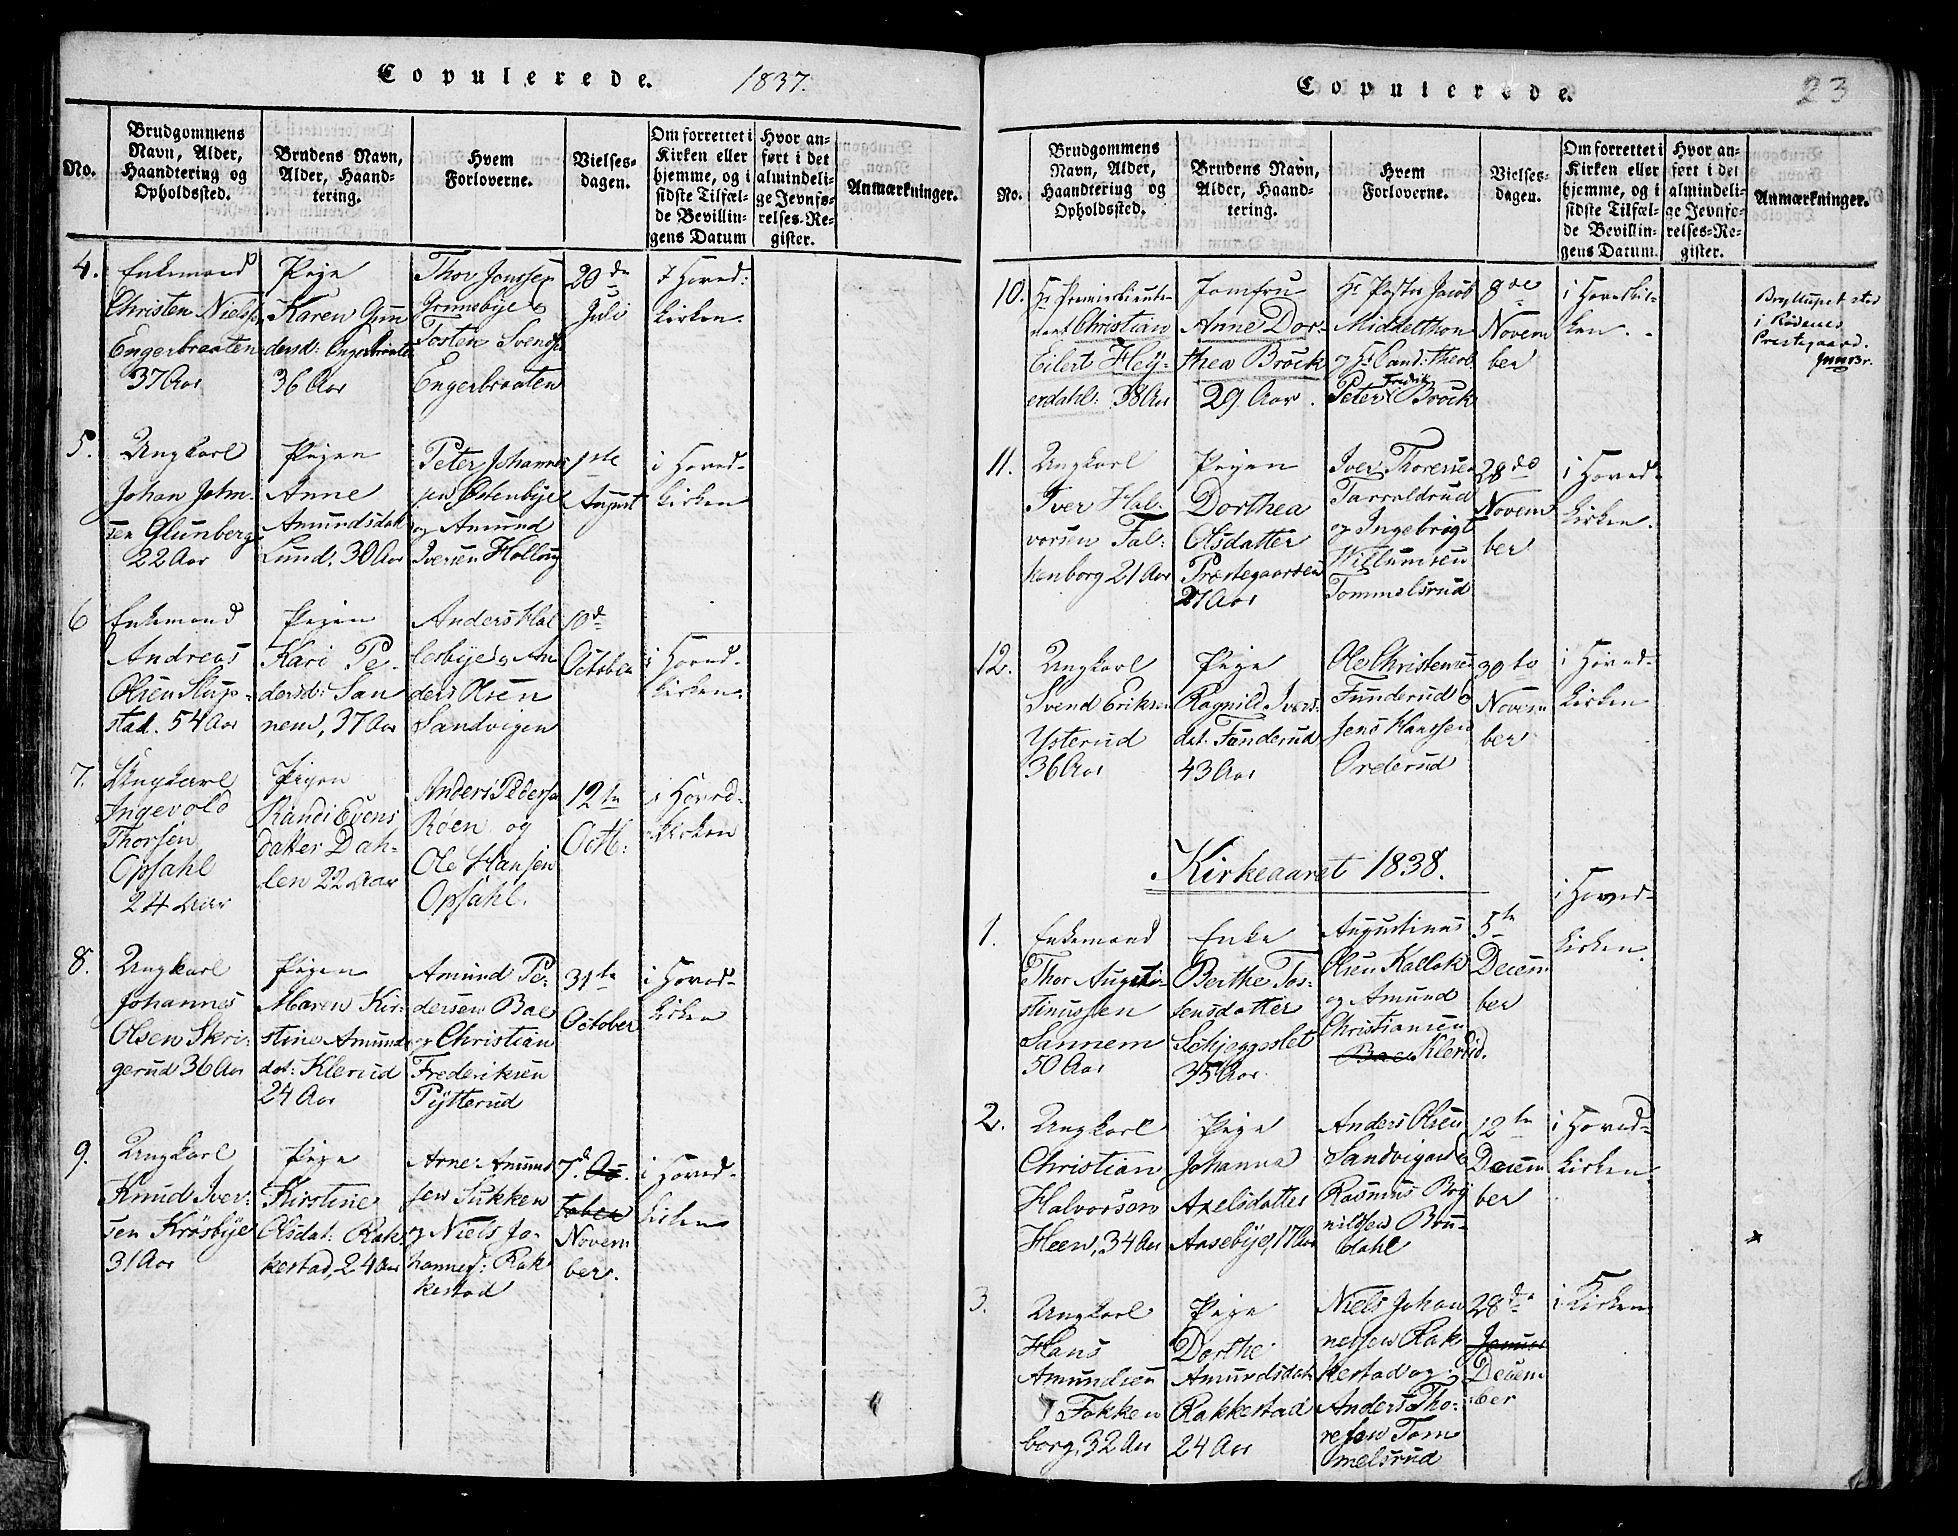 Copulerede. 1837.
No.
Brudgommens
Navn, Alder,
Haandtering og
Opholdssted.
Brudens Navn,
Alder, Haand-
tering.
Hvem
Forloverne.
Vielses-
dagen.
Om forrettet i
Kirken eller
hjemme, og i
sidste Tilfæl-
de Bevillin-
gens Datum
Hvor an-
ført i det
almindeli-
ge Jevnfø-
relses-Re-
gister.
Anmærkninger.
4.
Enkemand
Christen Niels
Engerbraaten
37 Aar
Pige
Karen Gun
dersd: Engerbraaten
36 Aar
Thor Jonssen
Grimsbye
Tosten Svends
Engerbraaten
20de
Juli
I Hoved:
kirken.
5.
Ungkarl
Johan John-
sen Glunberg
22 Aar
Pigen
Anne
Amundsdatt
Lund. 30 Aar
Peter Johannes
sen Østenbye
og Amund
Iversen Holleug
1ste
August
i Hoved-
kirken
6
Enkemand
Andreas
Olsen Slup-
stad. 54 Aar
Pigen
Kari Pe-
dersd: San
nem, 37 Aar
Anders Hal
lesbye og An
ders Olsen
Sandvigen
10d
October
i Hoved-
kirken.
7.
Ungkarl
Ingevold
Thorsen
Opsahl
24 Aar
Pigen
Randi Evens
datter Dah-
len 22 Aar
Anders Peders
Röen og
Ole Hansen
Opsahl.
12te
Octb:
i Hoved-
kirken
8.
Ungkarl
Johannes
Olsen Skri-
gerud 36 Aar
Pigen
Maren Kir-
stine Amunds
dat: Klerud
24 Aar
Amund Pe-
dersen Bae
og Christian
Frederiksen
Pytterud
31te
October
i Hoved-
kirken
9.
Ungkarl
Knud Iver-
sen Krosbye
31 Aar
Pige
Kirstine
Olsdat: Rak-
kestad, 24 Aar
Arne Amund
sen Sukken
og Niels Jo-
hannes: Rak
kestad
7d. Oc-
tober
Novem
ber.
i Hoved-
kirken
Copulerede. 23
No.
Brudgommens
Navn, Alder,
Haandtering og
Opholdssted.
Brudens Navn,
Alder, Haand-
tering.
Hvem
Forloverne.
Vielses-
dagen.
Om forrettet i
Kirken eller
hjemme, og i
sidste Tilfæl-
de Bevillin-
gens Datum.
Hvor an-
ført i det
almindeli-
ge Jevnfø-
relses-Re-
gister.
Anmærkninger.
10.
Hr Premierlieute-
nant Christian
Eilert Hey-
erdahl: 38 Aar
Jomfru
Anne Dor-
thea Brock
29 Aar.
Hr Pastor Jacob
Middelthon
og Hr Cand: theol:
Peter Fredrik Brock
8de
Novem
ber
i Hovedkir-
ken.
Bryllupet stod
i Rödenes
Prestegaard.
11.
Ungkarl
Iver Hal-
vorsen Fal-
kenborg 21 Aar
Pigen
Dorthea
Olsdatter
Præstegaarden
27 Aar
Iver Thoresen
Tarraldrud
og Ingebrigt
Willumsen
Tommelsrud
28de
Novem
ber
i Hoved-
kirken.
12.
Ungkarl
Svend Eriksen
Ysterud
36 Aar
Pige
Ragnild Ivers-
dat. Funderud
43 Aar
Ole Christensen
Funderud &
Jens Hanssen
Orderud
30te
Novem
ber
i Hoved-
kirken
Kirkeaaret 1838.
1.
Enkemand
Thor Augsti-
stinussen
Sannem
50 Aar
Enke
Berthe Tos-
tensdatter
Schjeggeslet
35 Aar.
Augustinus
Olsen Kallak
og Amund
Christiansen
Bae Klerud.
5te
Decem
ber
i Hoved-
kirken.
2.
Ungkarl
Christian
Halvorsen
Heen, 34 Aar
Pige
Johanna
Axelsdatter
Aasebye, 17 Aar
Anders Olsen
Sandvigen &
Rasmus Bry
nildsen Bön-
dahl
12te
Decem
ber
i Hoved-
kirken
3.
Ungkarl
Hans
Amundsen
Fokken
borg, 32 Aar
Pige
Dorthe
Amundsdat
Rakkestad
24 Aar
Niels Johan
nessen Rak
kestad og
Anders Tho-
resen Tom
melsrud
28de
Januar
Decem
ber
i Kirken